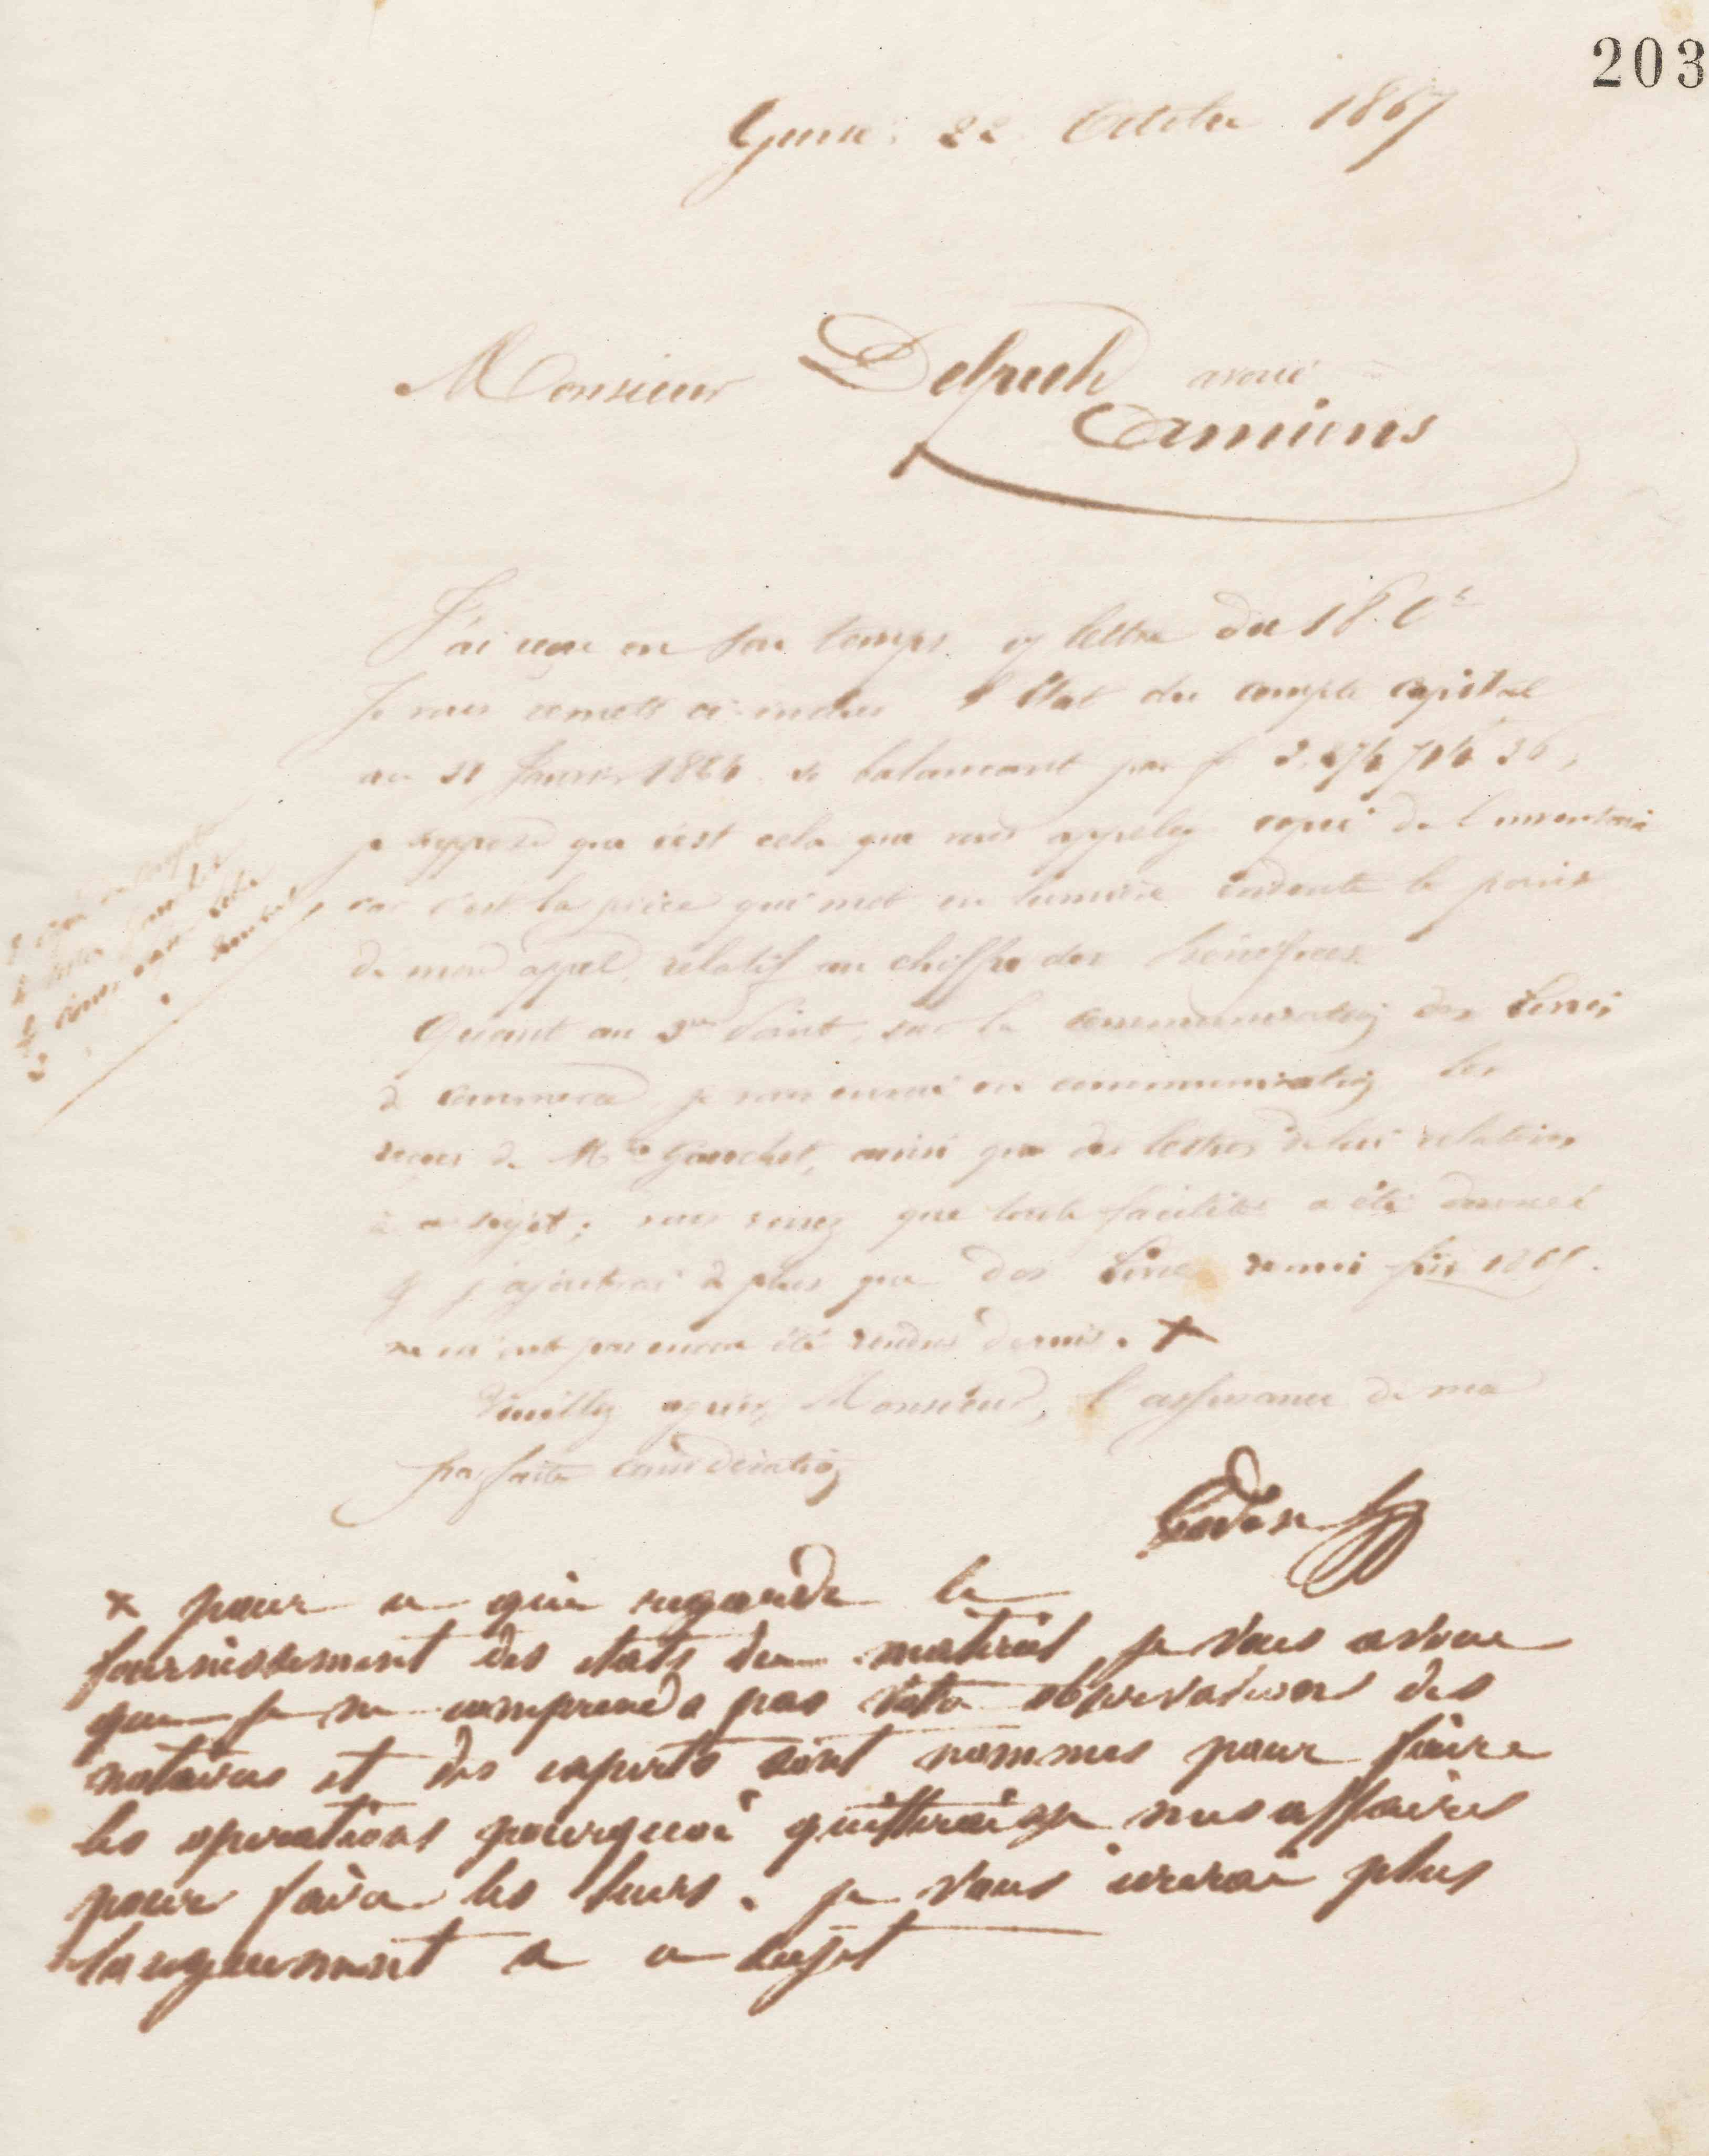 203
Guise 22 Octobre 1867
Monsieur Delpech avoué
Amiens
J'ai reçu en son temps v/ lettre du 18 Ct
Je vous remets ci-inclus l'état du compte capital
au 31 Janvier 1864 se balançant par f
je suppose que c'est cela que vous appelez copie de l'inventaire
car c'est la pièce qui met en lumière évidente le point
de mon appel relatif au chiffre des bénéfices
Quant au 2me Point, sur la communication des livres
de commerce je vous envoie en communication les
reçus de Me Gauchet, ainsi que des lettres de lui relatives
à ce sujet; vous verrez que toute facilité a été donnée
j'ajouterai de plus que des livres remis fin 1865
ne m'ont pas encore été rendus depuis. +
Veuillez agréer, Monsieur, l'assurance de ma
parfaite considération
Godin
x pour ce qui regarde le
fournissement des etats du matériel je vous avoue
que je ne comprends pas votre observations des
notaires et des experts sont nommes pour faire
les operations pourquoi quitterais je mes affaires
pour faire les leurs. je vous ecrirai plus
longuement a ce sujet